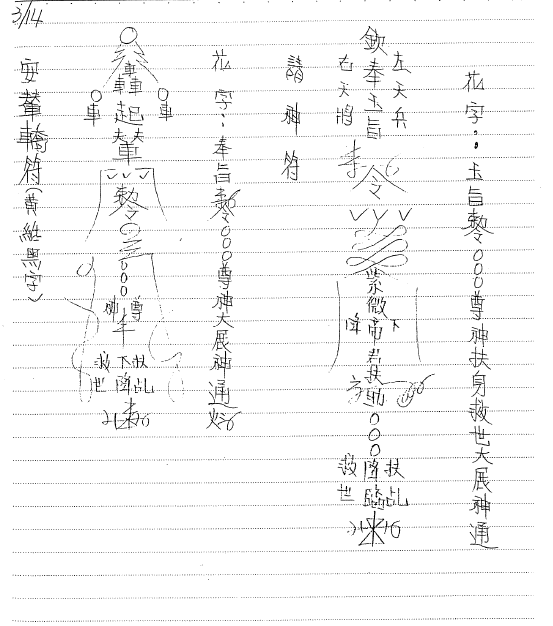 3/14
花字：玉旨勅令○○○尊神扶身救世大展神通
左天兵
欽奉玉旨
右天將
令
紫微帝君扶乩
下降
○○○
扶乩
降臨
救世
請神符
花字：奉旨勅令○○○尊神大展神通
車
起
車
輦
勅令
○○○
尊神
扶乩
下降
救世
安輦轎符(黃紙黑字)